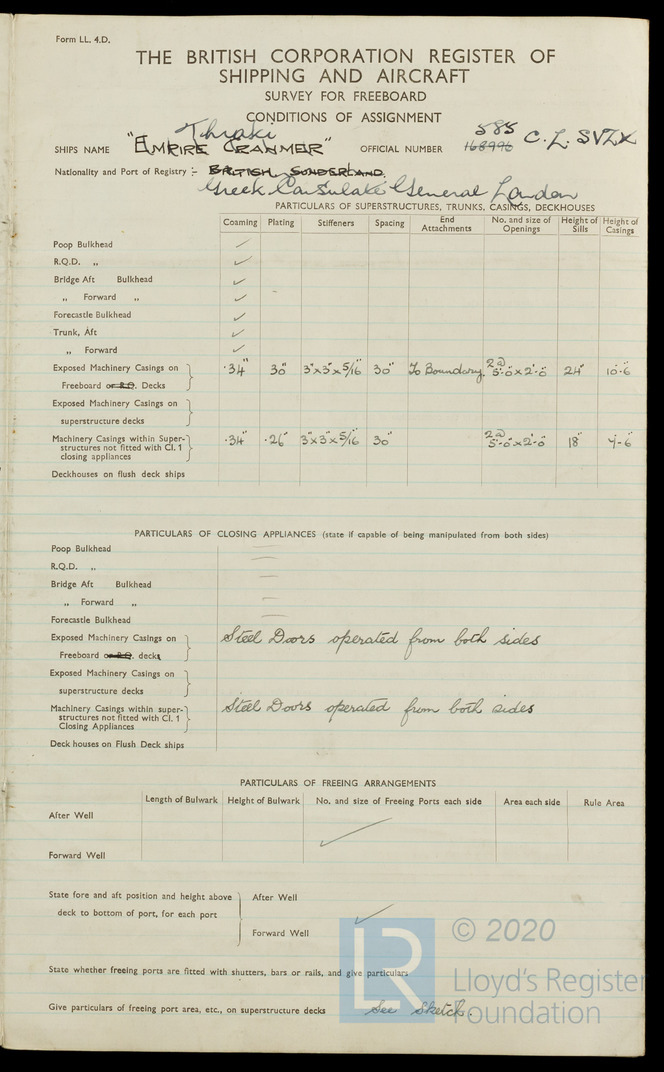 Form LL. 4.D.
THE BRITISH CORPORATION REGISTER OF
SHIPPING AND AIRCRAFT
SURVEY FOR FREEBOARD
CONDITIONS OF ASSIGNMENT
Thraki 585 C.L. SVZX
SHIPS NAME "EMPIRE CRANMER" OFFICIAL NUMBER 168996
Nationality and Port of Registry :- BRITISH, SUNDERLAND.
Greek Consulate General London
PARTICULARS OF SUPERSTRUCTURES, TRUNKS, CASINGS, DECKHOUSES
Coaming Plating Stiffeners Spacing End Attachments No. and size of Openings Height of Sills Height of Casings
Poop Bulkhead ✓
R.Q.D. „ ✓
Bridge Aft Bulkhead ✓
„ Forward „ ✓
Forecastle Bulkhead ✓
Trunk, Aft ✓
„ Forward ✓
Exposed Machinery Casings on ·34" 30" 3"x3"x5/16 30" To Boundary. 2@ 5'-0"x2'-0" 24" 10'-6"
Freeboard or R.Q. Decks
Exposed Machinery Casings on
superstructure decks
Machinery Casings within Super- ·34" ·26" 3"x3"x5/16 30" 2@ 5'-0"x2'-0" 18" 7'-6"
structures not fitted with Cl. 1
closing appliances
Deckhouses on flush deck ships
PARTICULARS OF CLOSING APPLIANCES (state if capable of being manipulated from both sides)
Poop Bulkhead
R.Q.D. „
Bridge Aft Bulkhead
„ Forward „
Forecastle Bulkhead
Exposed Machinery Casings on Steel Doors operated from both sides
Freeboard or R.Q. decks
Exposed Machinery Casings on
superstructure decks
Machinery Casings within super- Steel Doors operated from both sides
structures not fitted with Cl. 1
Closing Appliances
Deck houses on Flush Deck ships
PARTICULARS OF FREEING ARRANGEMENTS
Length of Bulwark Height of Bulwark No. and size of Freeing Ports each side Area each side Rule Area
After Well
✓
Forward Well
State fore and aft position and height above After Well
deck to bottom of port, for each port ✓
Forward Well
State whether freeing ports are fitted with shutters, bars or rails, and give particulars
Give particulars of freeing port area, etc., on superstructure decks See Sketch.
LR
© 2020
Lloyd's Register
Foundation